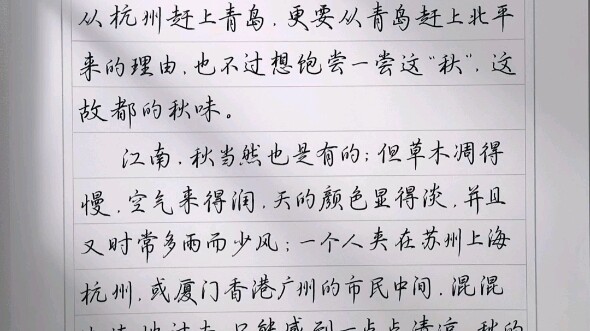 从杭州赶上青岛，更要从青岛赶上北平
来的理由，也不过想饱尝一尝这“秋”，这
故都的秋味。
江南，秋当然也是有的；但草木凋得
慢，空气来得润，天的颜色显得淡，并且
又时常多雨而少风；一个人夹在苏州上海
杭州，或厦门香港广州的市民中间，混混
地过去，只能感到一点点清凉，秋的